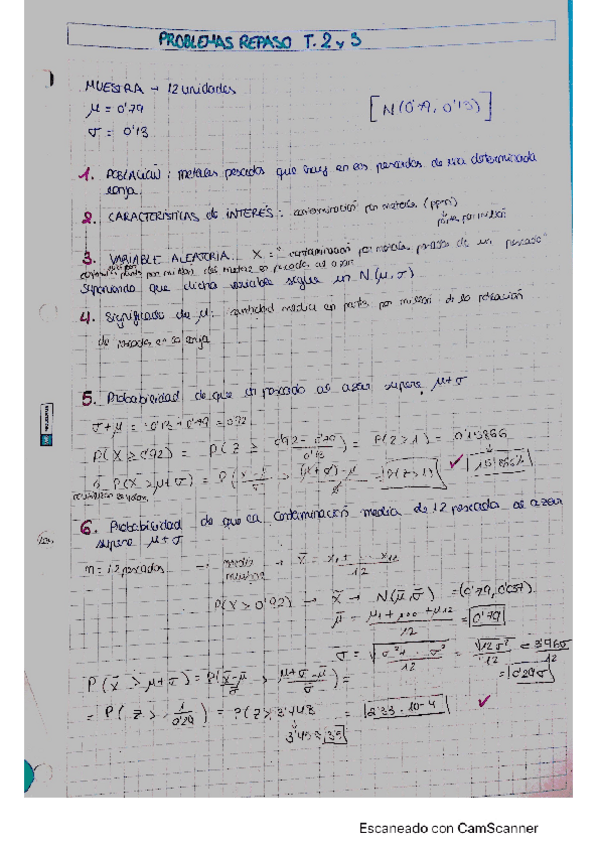 PROBLEMAS REPASO T. 2 y 3
MUESTRA → 12 unidades
μ = 0'79
[N(0'79, 0'13)]
σ = 0'13
1. POBLACIÓN: metales pesados que hay en los pescados de una determinada
lonja
2. CARACTERÍSTICAS de INTERÉS: contaminación por metales (ppm)
partes por millón
3. VARIABLE ALEATORIA. X = "contaminación por metales pesados de un pescado"
partes por millón de metal en pescado al azar
Suponiendo que dicha variable sigue un N(μ, σ)
4. Significado de μ: cantidad media en partes por millón de la población
de pescados en la lonja
5. Probabilidad de que un pescado al azar supere μ+σ
σ+μ = 0'13 + 0'79 = 0'92
P(X ≥ 0'92) = P(Z ≥ 0'92 - 0'79 / 0'13) = P(Z > 1) = 0'15866
P(X > μ+σ) = P(X-μ / σ > (μ+σ)-μ / σ) = P(Z > 1) ✓ 15'866%
6. Probabilidad de que la contaminación media de 12 pescados al azar
supere μ+σ
n = 12 pescados → media muestral → X̄ = x₁ + ... x₁₂ / 12
P(X > 0'92) → X̄ → N(μ̄, σ̄) = (0'79, 0'037).
μ̄ = μ₁ + ... + μ₁₂ / 12 = 0'79
σ̄ = √σ²₁ ... σ² / 12 = √12σ² / 12 = 3'46σ / 12
= 0'29σ
P(X̄ > μ+σ) = P(X̄-μ̄ / σ̄ > μ+σ-μ̄ / σ̄) =
= P(Z > 1 / 0'29) = P(Z > 3'448 = 2'33 · 10-4 ✓
Escaneado con CamScanner